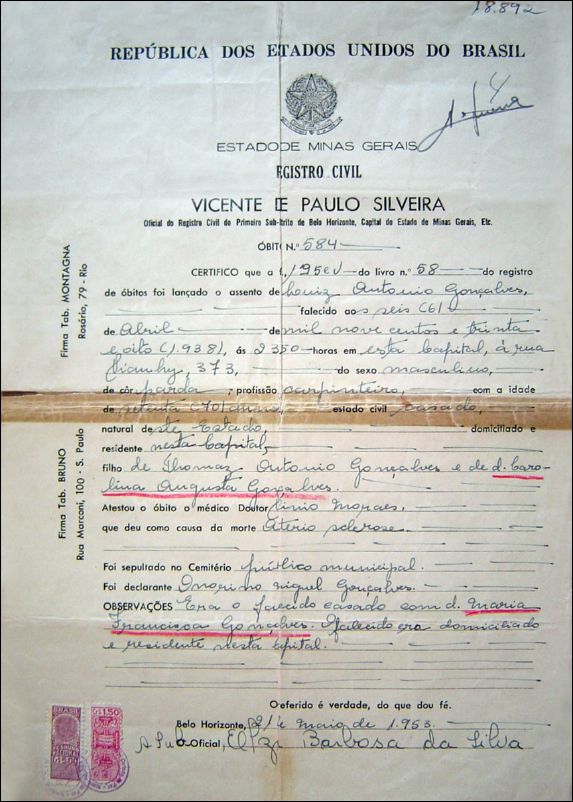 18.892
REPÚBLICA DOS ESTADOS UNIDOS DO BRASIL
ESTADO DE MINAS GERAIS
REGISTRO CIVIL
VICENTE DE PAULO SILVEIRA
Oficial do Registro Civil do Primeiro Sub-distrito de Belo Horizonte, Capital do Estado de Minas Gerais, Etc.
ÓBITO N.º 584
CERTIFICO que a f. 195 do livro n.º 58 do registro
de óbitos foi lançado o assento de Luiz Antonio Gonçalves,
falecido aos seis (6)
de Abril de mil nove centos e trinta
e oito (1.938), ás 2350 horas em esta Capital, á rua
Pianhy, 373, do sexo masculino,
de côr parda, profissão carpinteiro, com a idade
de setenta (70) anos, estado civil casado,
natural de dêste Estado, domiciliado e
residente nesta Capital,
filho de Thomaz Antonio Gonçalves e de d. Caro-
lina Augusta Gonçalves.
Atestou o óbito o médico Doutor Linio Moraes,
que deu como causa da morte Aterio sclerose.
Foi sepultado no Cemitério público municipal.
Foi declarante Onorino Miguel Gonçalves.
OBSERVAÇÕES Era o falecido casado com d. Maria
Francisca Gonçalves. O falecido era domiciliado
e residente nesta Capital.
O referido é verdade, do que dou fé.
Belo Horizonte, 21 de maio de 1.953.
A Sub-Oficial, Elza Barbosa da Silva
Firma Tab. MONTAGNA
Rosário, 79 - Rio
Firma Tab. BRUNO
Rua Marconi, 100 - S. Paulo
BRASIL
1,50